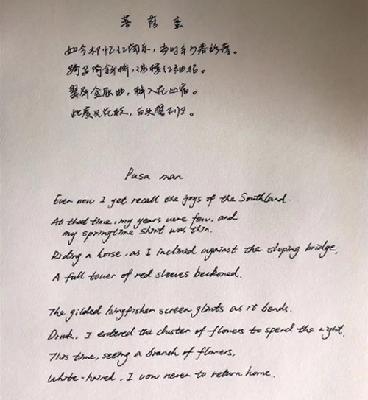 菩薩蛮
如今却忆江南乐,当时年少春衫薄。
骑马倚斜桥,满楼红袖招。
翠屏金屈曲,醉入花丛宿。
此度见花枝,白头誓不归。
Pusa man
Even now I yet recall the joys of the Southland.
At that time, my years were few, and
my springtime shirt was thin.
Riding a horse, as I inclined against the sloping bridge,
A full tower of red sleeves beckoned.
The gilded kingfisher screen glints as it bends.
Drunk, I entered the cluster of flowers to spend the night.
This time, seeing a branch of flowers,
White-haired, I vow never to return home.